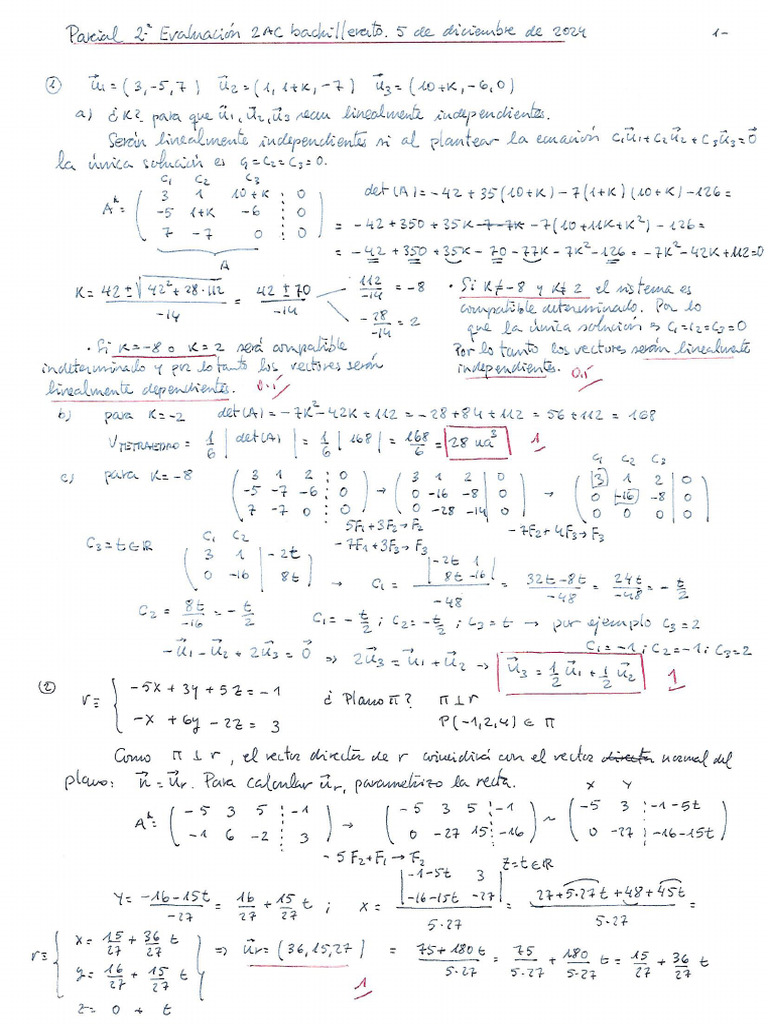 Parcial 2ª Evaluación 2AC bachillerato. 5 de diciembre de 2024 1-
① u⃗₁=(3,-5,7) u⃗₂=(1,1+K,-7) u⃗₃=(10+K,-6,0)
a) ¿K? para que u⃗₁,u⃗₂,u⃗₃ sean linealmente independientes.
Serán linealmente independientes si al plantear la ecuación C₁u⃗₁+C₂u⃗₂+C₃u⃗₃=0⃗
la única solución es C₁=C₂=C₃=0.
C₁ C₂ C₃
3 1 10+K ⋮ 0 det(A)=-42+35(10+K)-7(1+K)(10+K)-126=
A*= -5 1+K -6 ⋮ 0 =-42+350+35K-7-7K-7(10+11K+K²)-126=
7 -7 0 ⋮ 0 =-42+350+35K-70-77K-7K²-126=-7K²-42K+112=0
A
K= (42±√(42²+28·112))/-14 = (42±70)/-14 112/-14=-8 -28/-14=2
· Si K≠-8 y K≠2 el sistema es
compatible determinado. Por lo
que la única solución es C₁=C₂=C₃=0
Por lo tanto los vectores serán linealmente
independientes. 0.5
· Si K=-8 o K=2 será compatible
indeterminado y por lo tanto los vectores serán
linealmente dependientes. 0.5
b) para K=-2 det(A)=-7K²-42K+112=-28+84+112=56+112=168
V TETRAEDRO = 1/6 |det(A)| = 1/6 |168| = 168/6 = 28 ua³ 1
c) para K=-8
C₁ C₂ C₃
(3 1 2 ⋮ 0) → (3 1 2 | 0) → (3 1 2 | 0)
(-5 -7 -6 ⋮ 0) (0 -16 -8 | 0) (0 -16 -8 | 0)
(7 -7 0 ⋮ 0) (0 -28 -14 | 0) (0 0 0 | 0)
5F₁+3F₂→F₂ -7F₂+4F₃→F₃
-7F₁+3F₃→F₃
C₃=t∈ℝ C₁ C₂
(3 1 | -2t)
(0 -16 | 8t) → C₁= |-2t 1 8t -16|/-48 = (32t-8t)/-48 = 24t/-48 = -t/2
C₂= 8t/-16 = -t/2 C₁=-t/2; C₂=-t/2; C₃=t → por ejemplo C₃=2
C₁=-1; C₂=-1; C₃=2
-u⃗₁-u⃗₂+2u⃗₃=0⃗ ⇒ 2u⃗₃=u⃗₁+u⃗₂ → u⃗₃=1/2 u⃗₁+1/2 u⃗₂ 1
② r≡ { -5x+3y+5z=-1 ¿Plano π? π⊥r
-x+6y-2z=3 P(-1,2,4)∈π
Como π⊥r, el vector director de r coincidirá con el vector director normal del
plano: n⃗=u⃗r. Para calcular u⃗r, parametrizo la recta.
X Y
A*= (-5 3 5 ⋮ -1) → (-5 3 5 ⋮ -1) ~ (-5 3 ⋮ -1-5t)
(-1 6 -2 ⋮ 3) (0 -27 15 ⋮ -16) (0 -27 ⋮ -16-15t)
-5F₂+F₁→F₂ z=t∈ℝ
Y= (-16-15t)/-27 = 16/27 + 15/27 t ; X= |-1-5t 3 -16-15t -27|/5·27 = (27+5·27t+48+45t)/5·27 =
= (75+180t)/5·27 = 75/5·27 + 180/5·27 t = 15/27 + 36/27 t
r≡ { x=15/27+36/27 t
y=16/27+15/27 t ⇒ u⃗r=(36,15,27) 1
z=0+t